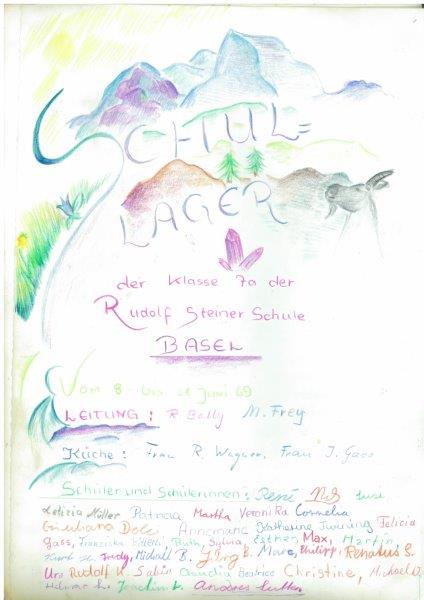 SCHUL=
LAGER
der Klasse 7a der
Rudolf Steiner Schule
BASEL
Vom 8. bis Juni 69
LEITUNG: R Bolly M. Frey
Küche: Frau R. Wagner, Frau J. Gass
Schüler und Schülerinnen: René
Letizia Müller Patricia Martha Veronika Cornelia
Giuliana Annemarie Katherine Felicia
Gass, Franziska Ruth, Sylvia, Esther, Max, Martin,
Trudy, Michael B. Jürg B. Marc, Philipp, Renatus S.
Urs Rudolf K. Sabin Claudia Beatrice Christine, Michael
Joachim Andreas